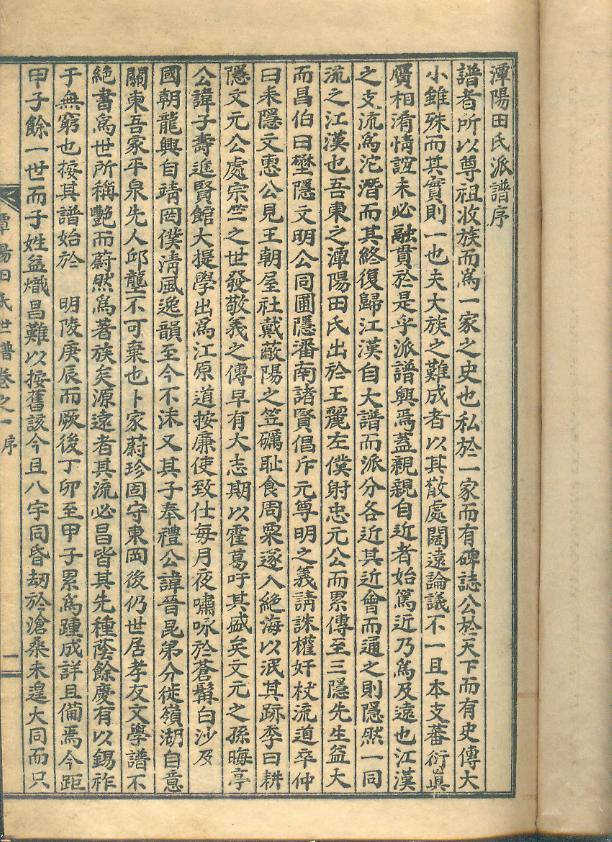 潭陽田氏派譜序
譜者所以尊祖收族而爲一家之史也私於一家而有碑誌公於天下而有史傳大
小雖殊而其實則一也夫大族之難成者以其散處闊遠論議不一且本支蕃衍眞
贗相淆情誼未必融貫於是乎派譜興焉蓋親親自近者始篤近乃爲及遠也江漢
之支流爲沱潛而其終復歸江漢自大譜而派分各近其近會而通之則隱然一同
流之江漢也吾東之潭陽田氏出於王麗左僕射忠元公而累傳至三隱先生益大
而昌伯曰壄隱文明公同圃隱潘南諸賢倡斥元尊明之義請誅權奸杖流道卒仲
曰耒隱文惠公見王朝屋社戴蔽陽之笠礪耻食周粟遂入絶海以泯其跡季曰耕
隱文元公處宗竺之世發敬義之傳早有大志期以霍葛吁其盛矣文元之孫晦亭
公諱子壽進賢館大提學出爲江原道按廉使致仕每月夜嘯咏於蒼髥白沙及
國朝龍興自靖罔僕淸風逸韻至今不沫又其子奉禮公諱晉昆弟分徙嶺湖自意
關東吾家平泉先人邱壟不可棄也卜家蔚珍固守東岡後仍世居孝友文學譜不
絶書爲世所稱艶而蔚然爲著族矣源遠者其流必昌皆其先種蔭餘慶有以錫祚
于無窮也按其譜始於 明陵庚辰而厥後丁卯至甲子累爲踵成詳且僃焉今距
甲子餘一世而子姓益熾昌難以按舊該今且八宇同昏劫於滄桑未遑大同而只
潭陽田氏世譜卷之一 序 一